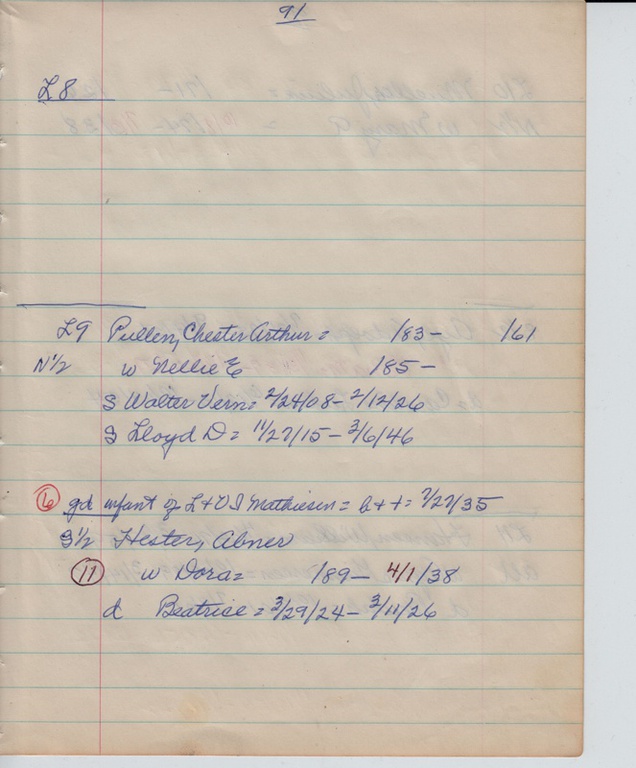 91
L8
L9 Pullen, Chester Arthur = /83- /61
N1/2 w Nellie E 185-
S Walter Vern = 2/24/08 - 2/12/26
S Lloyd D = 11/27/15 - 3/6/46
6 gd infant of L + V I Mathiesen = b + + = 7/27/35
S1/2 Hester, Abner
11 w Dora = /89 - 4/1/38
d Beatrise = 3/29/24 - 3/11/26